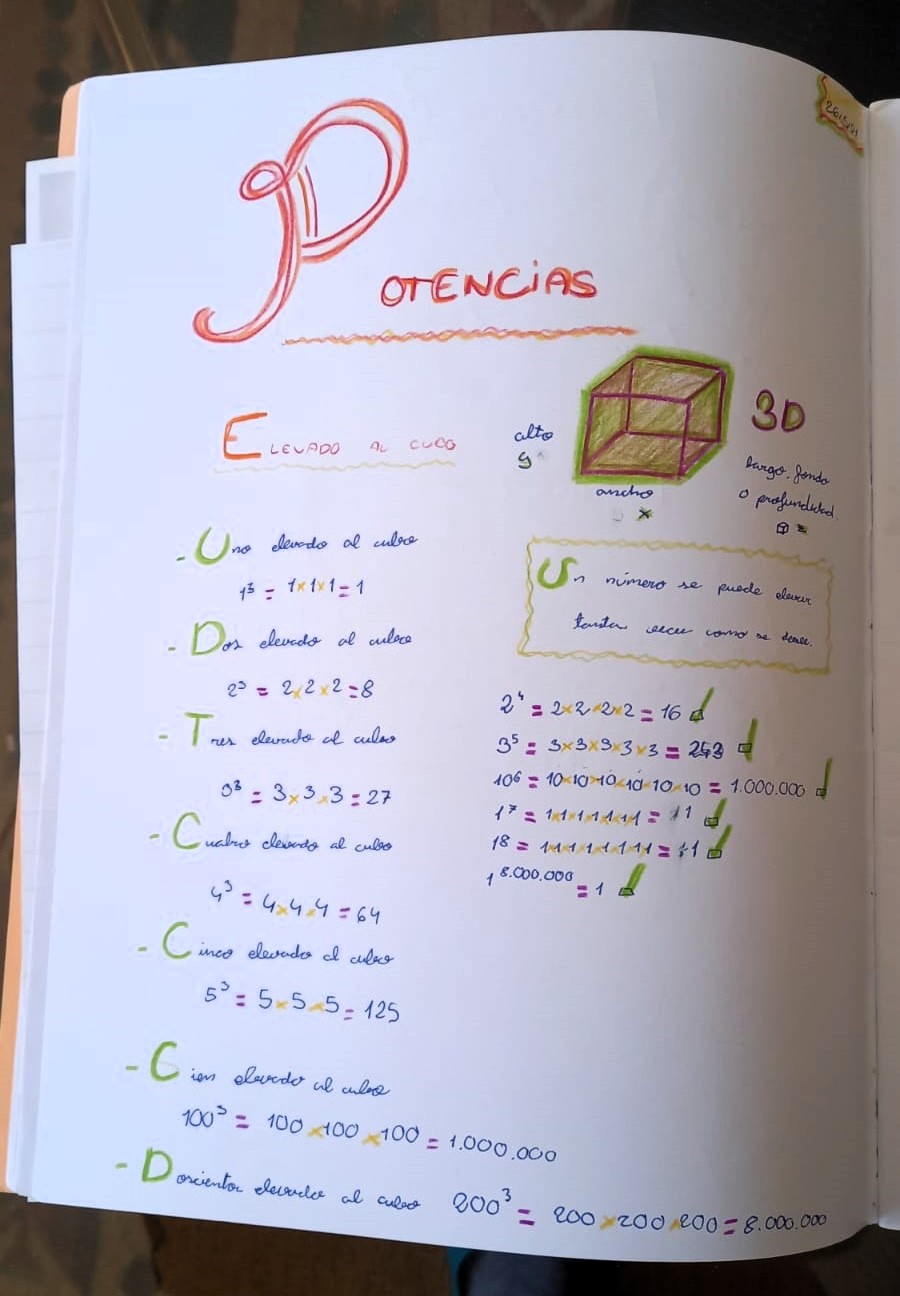 POTENCIAS
ELEVADO AL CUBO
alto
y
ancho
x
3D
largo, fondo
o profundidad
- Uno elevado al cubo
1³ = 1x1x1=1
- Dos elevado al cubo
2³ = 2x2x2=8
- Tres elevado al cubo
3³ = 3x3x3=27
- Cuatro elevado al cubo
4³ = 4x4x4=64
- Cinco elevado al cubo
5³ = 5x5x5=125
- Cien elevado al cubo
100³ = 100x100x100=1.000.000
- Doscientos elevado al cubo 200³ = 200x200x200=8.000.000
Un número se puede elevar
tantas veces como se desee.
2⁴ = 2x2x2x2=16
3⁵ = 3x3x3x3x3=243
10⁶ = 10x10x10x10x10x10=1.000.000
1⁷ = 1x1x1x1x1x1x1=1
1⁸ = 1x1x1x1x1x1x1x1=1
1⁸·⁰⁰⁰·⁰⁰⁰ = 1